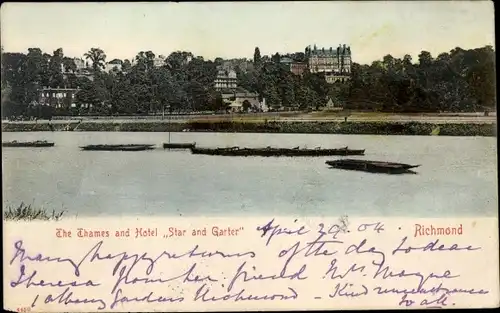 The Thames and Hotel „Star and Garter"
April 29. 04.
Richmond
Many happy returns of the day to dear
Theresa from her friend Mrs Mayne
1 Albany Gardens Richmond - Kind remembrance
to all.